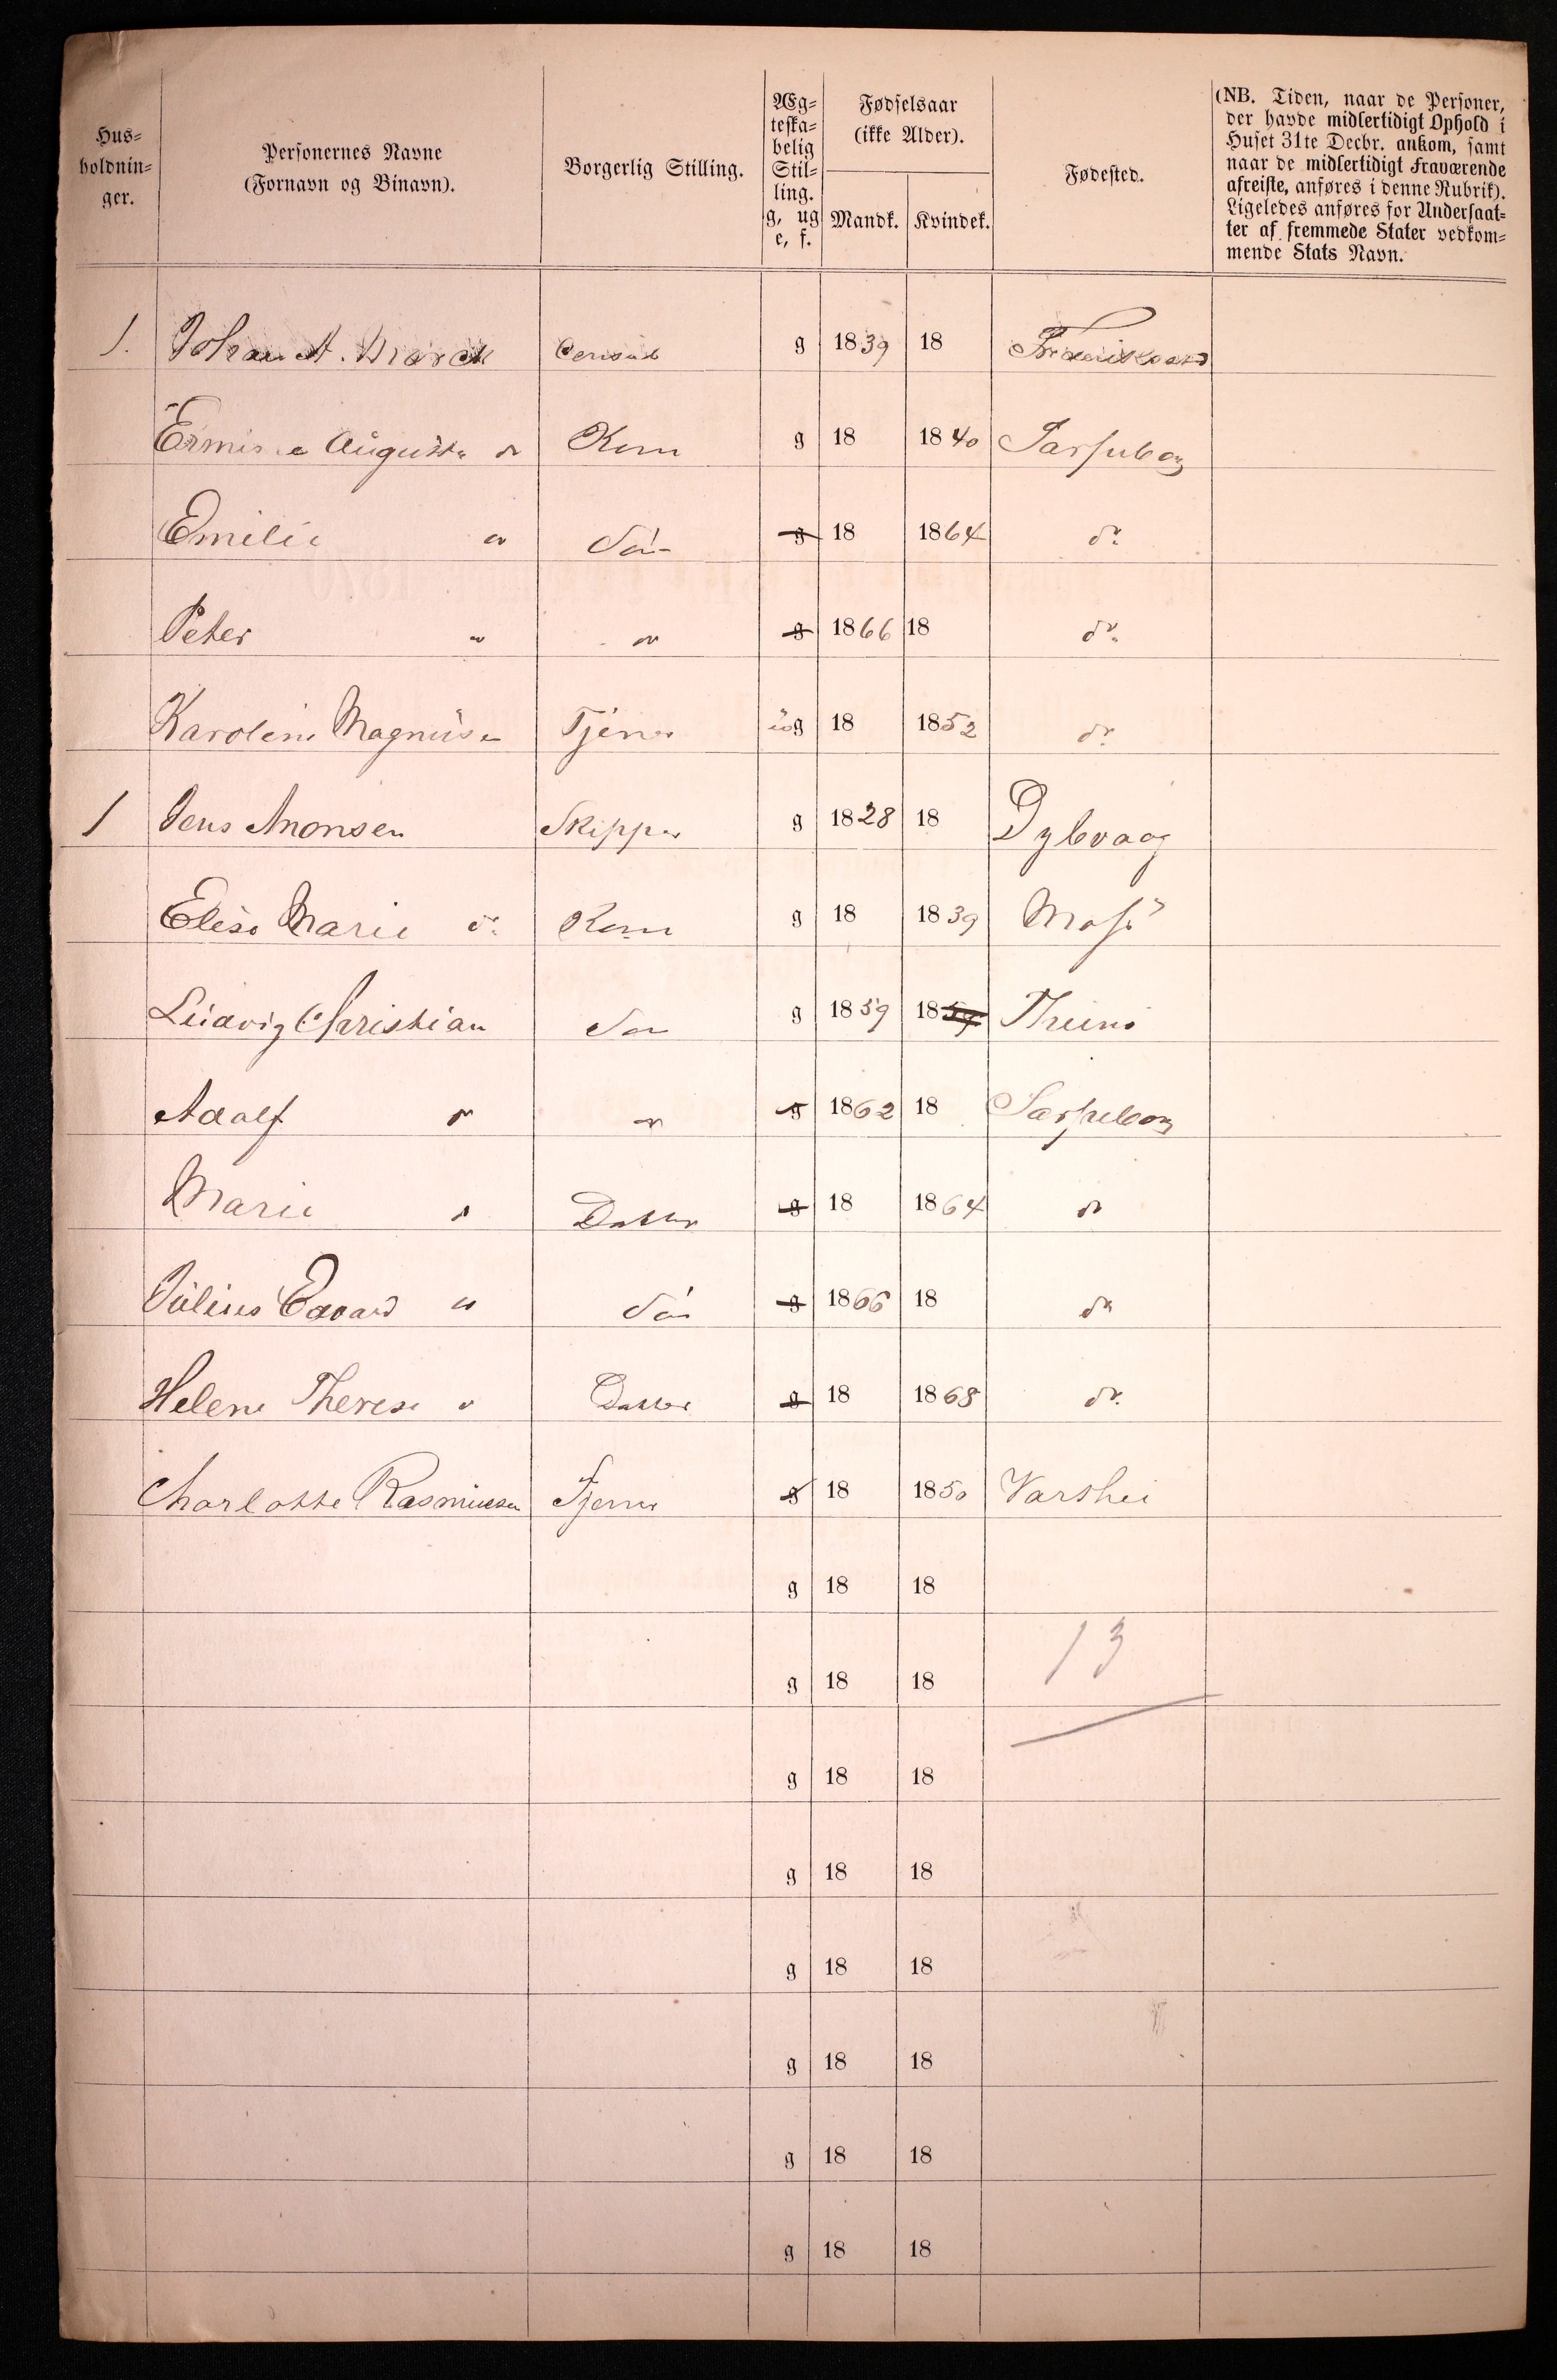 Hus=
holdnin=
ger.
Personernes Navne
(Fornavn og Binavn).
Borgerlig Stilling.
Æg=
teska=
belig
Stil=
ling.
g, ug
e, f.
Fødselsaar
(ikke Alder).
Mandk. Kvindek.
Fødested.
(NB. Tiden, naar de Personer,
der havde midlertidigt Ophold i
Huset 31te Decbr. ankom, samt
naar de midlertidigt fraværende
afreiste, anføres i denne Rubrik).
Ligeledes anføres for Undersaat=
ter af fremmede Stater vedkom=
mende Stats Navn.
1. Johan A. g 1839 18
Augusta Kone g 18 1840 Sarpsborg
Emilie g 18 1864 do
Peter g 1866 18 do
Karoline Magnusen Tjener ug 18 1852 do
1 Jens Amonsen Skipper g 1828 18 Dybvaag
Elise Marie do Kone g 18 1839 Moss
Ludvig Christian Søn g 1859 18
Adolf do g 1862 18 Sarpsborg
Marie do Datter g 18 1864 do
Julius Edvard Søn g 1866 18 do
Helene Therese Datter g 18 1868 do
Charlotte Rasmusen Tjener g 18 1850
g 18 18
g 18 18 13
g 18 18
g 18 18
g 18 18
g 18 18
g 18 18
g 18 18